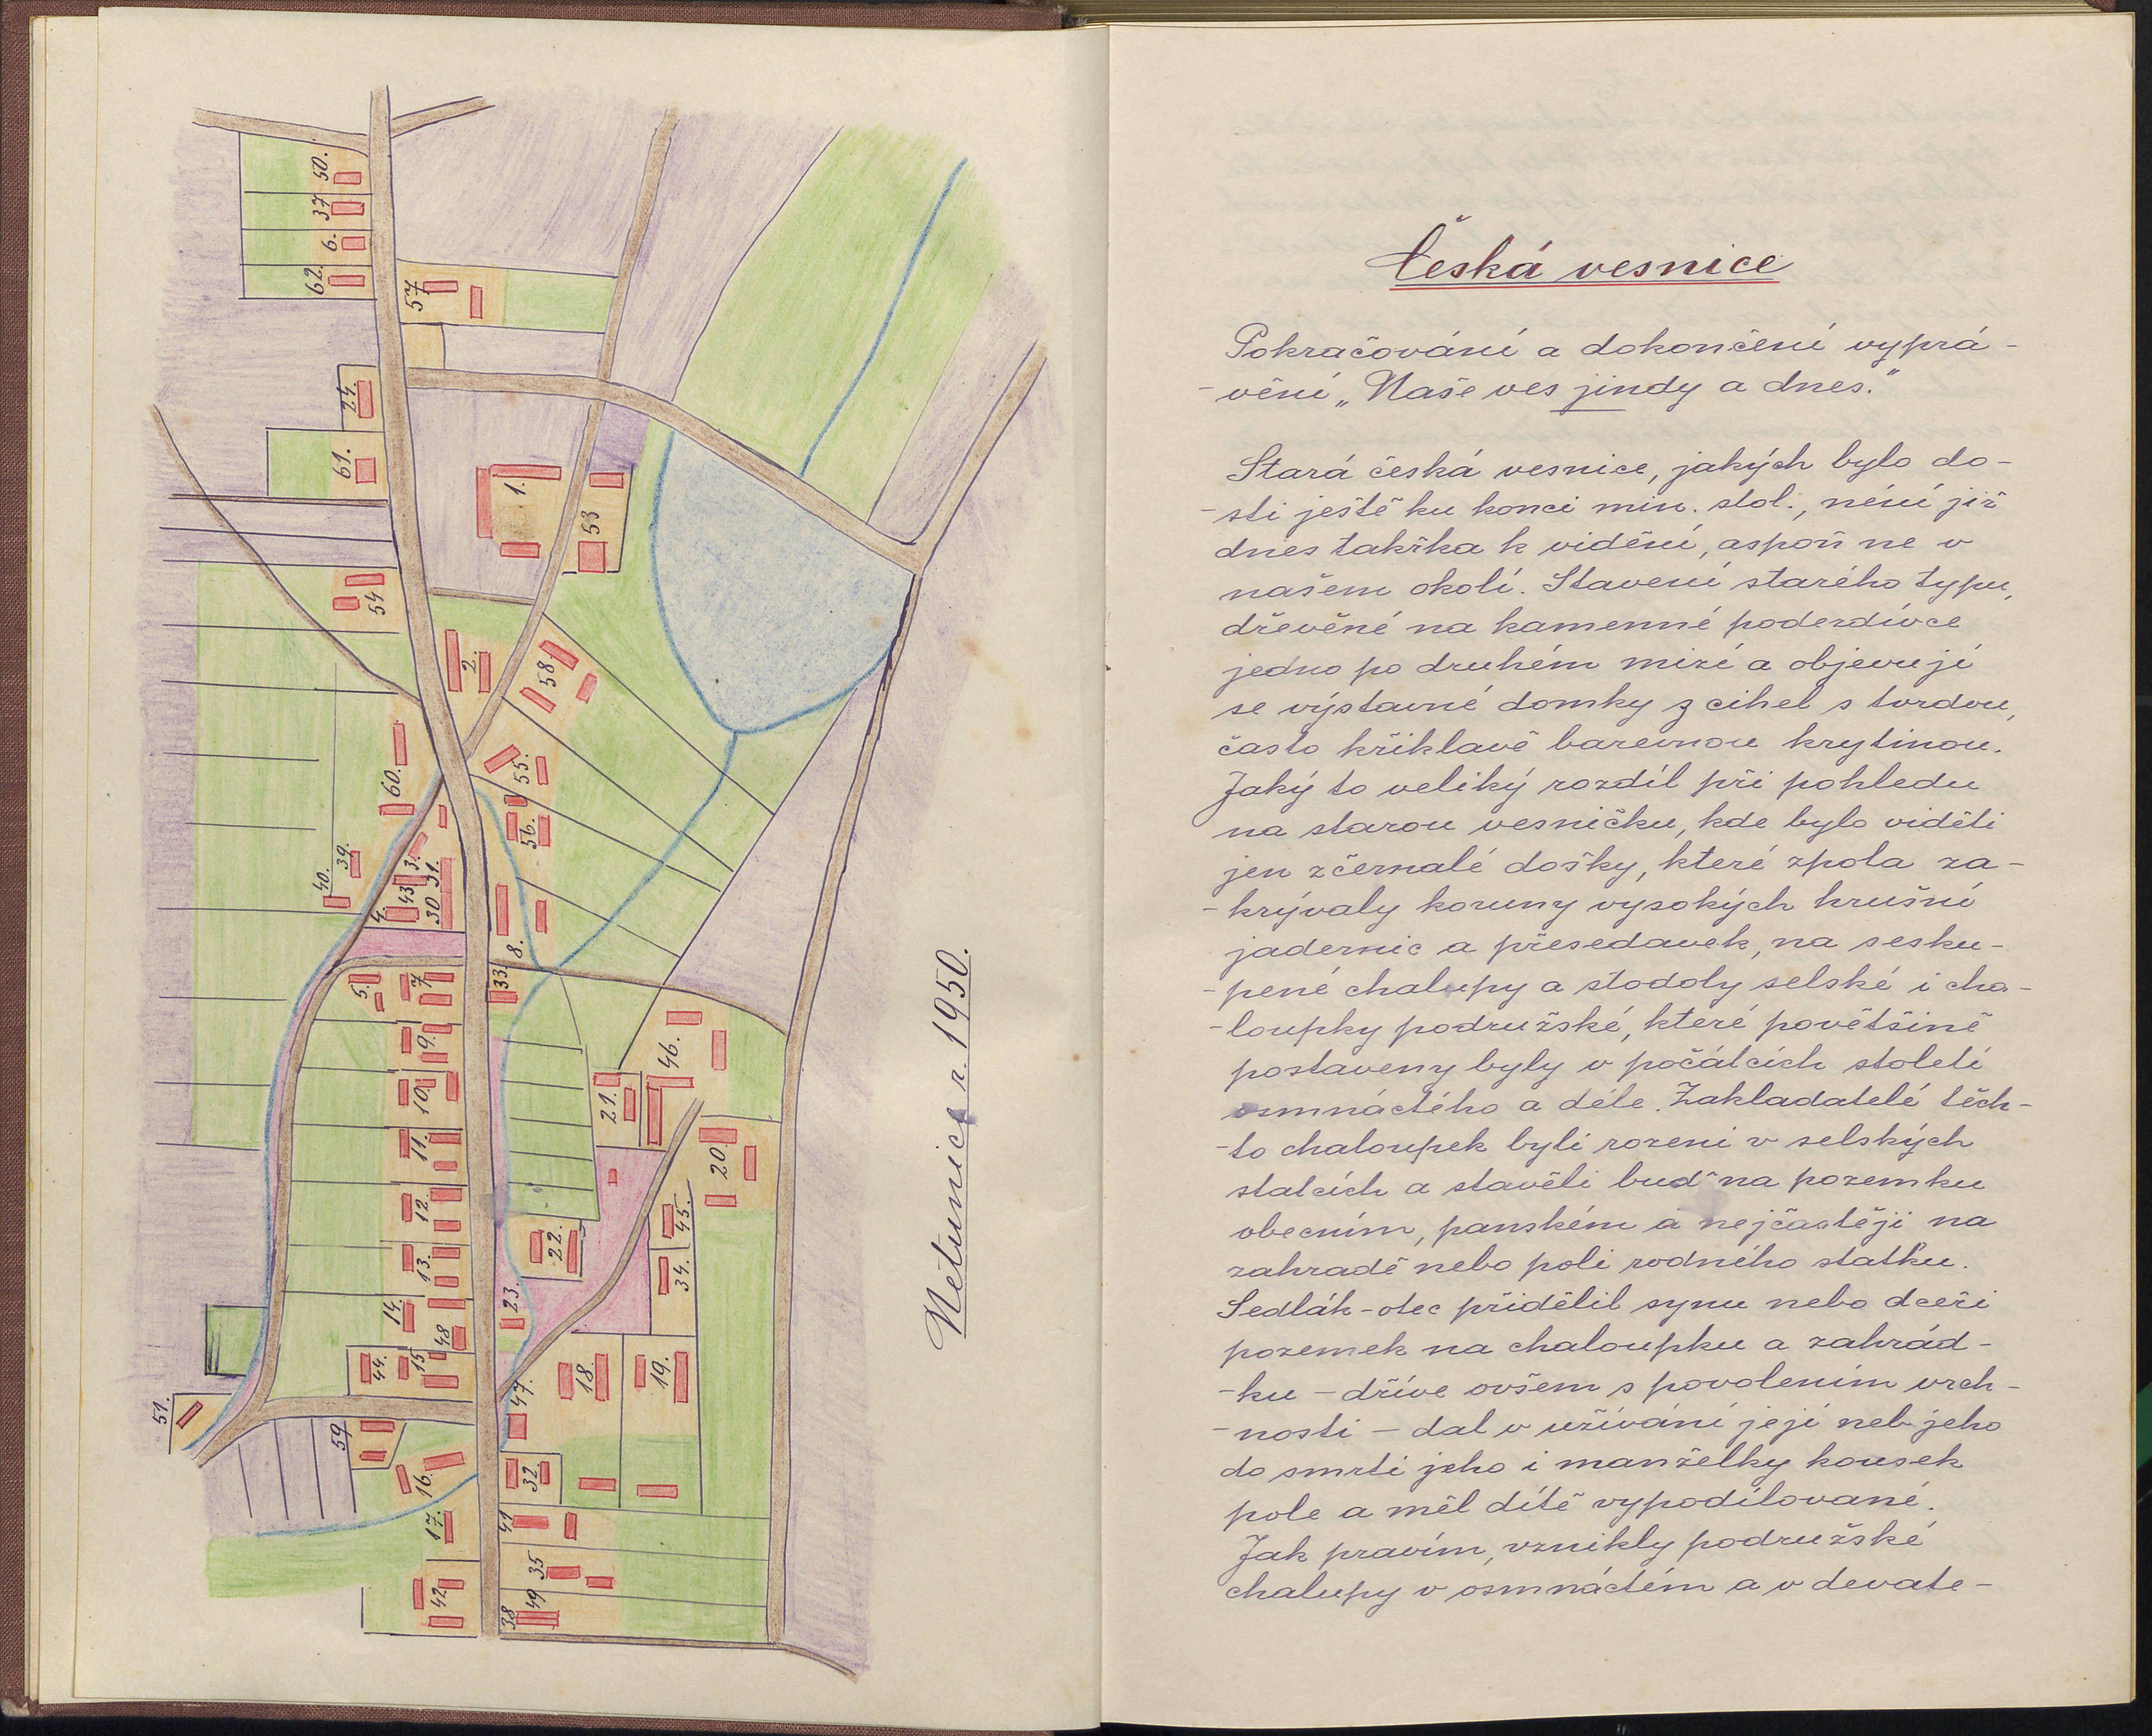 50.
37
6.
62.
57
24.
61.
1.
53
54
2.
58
60.
55.
56.
39.
40.
3.
43
31.
4.
30
8.
33
5.
7.
9.
46.
10.
21.
11.
20.
12.
45.
22.
13.
34.
14.
23.
48
44.
15
18.
19.
47.
51.
59
16.
32.
17.
41
35
42
49
38
Netunice r. 1950.
Česká vesnice
Pokračování a dokončení vyprá-
-vění „Naše ves jindy a dnes."
Stará česká vesnice, jakých bylo do-
-sti ještě ku konci min. stol., není již
dnes takřka k vidění, aspoň ne v
našem okolí. Stavení starého typu,
dřevěné na kamenné podezdívce
jedno po druhém mizí a objevují
se výstavné domky z cihel s tvrdou,
často křiklavě barevnou krytinou.
Jaký to veliký rozdíl při pohledu
na starou vesničku, kde bylo viděti
jen zčernalé došky, které zpola za-
-krývaly koruny vysokých hrušní
jadernic a přesedavek, na sesku-
-pené chalupy a stodoly selské i cha-
-loupky podružské, které povětšině
postaveny byly v počátcích století
osmnáctého a déle. Zakladatelé těch-
-to chaloupek byli rozeni v selských
statcích a stavěli buď na pozemku
obecním, panském a nejčastěji na
zahradě nebo poli rodného statku.
Sedlák-otec přidělil synu nebo dceři
pozemek na chaloupku a zahrád-
-ku - dříve ovšem s povolením vrch-
-nosti - dal v užívání její neb jeho
do smrti jeho i manželky kousek
pole a měl dítě vypodílované.
Jak pravím, vznikly podružské
chalupy v osmnáctém a v devate-